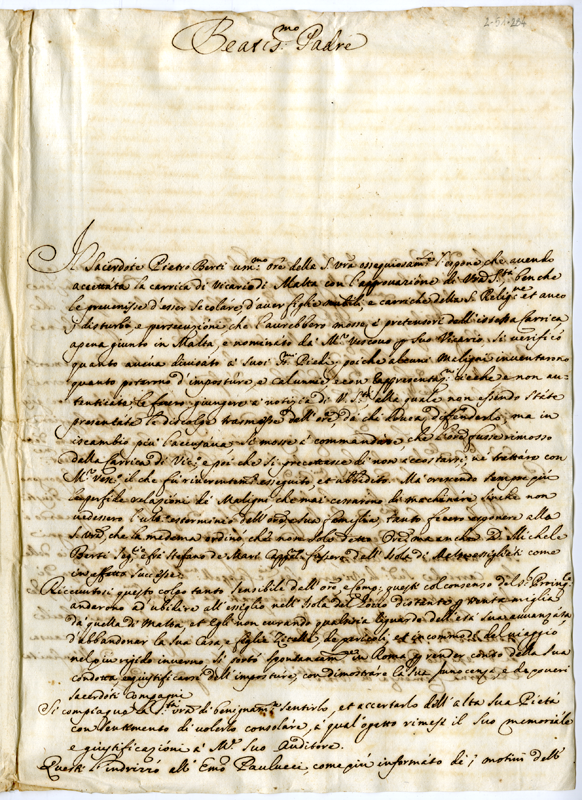 2-54-284
Beatis.mo Padre
Il Sacerdote Pietro Berti um.mo ore della S. vra ossequiosam.te l'espone che avendo
accettata la carrica di Vicario di Malta con l'approvazione di Vra S.tà benche
le prevenisse d'esser secolare d'aver figlie nubili, e carriche della S. Relig.ne et anco
i disturbi e persecuzioni che l'avrebbero mosse i pretensori dell'istessa carrica
apena giunto in Malta, e nominato da M.r Vescovo p suo Vicario. Si verificò
quanto aveva divisato a Suoi Piedi, poiche alcuni Maligni inventarono
quanto poterno d'imposture, e calunnie e con rappresentaz.ni cieche e non au-
tenticate le fecero giungere a notizia di V. S.tà la quale non essendo state
presentate le discolpe trasmesse dell'ore, da chi doveva difenderlo, ma in
iscambio più l'accusava si mosse a commandare che l'ore fusse rimosso
della carrica di Vic.o e poi che si precettasse di non accostarsi, ne trattare con
M.r Vesc.o il che fù riverentem.te esseguito et obbidito. Ma crescendo sempre più
le perfide relazioni de Maligni che mai cessarono di machinare finche non
vedessero l'ultimo esterminio dell'ore e sua famiglia, tanto fecero esponere alla
S. vra, che la medema ordinò che non solo detto Ore ma anche D. Michele
Berti e D. Stefano de Mari fossero dell'Isola di Malta esigliati come
in effetto successe.
Ricevutosi questo colpo tanto sensibile dell'ore e comp.i questi col consenso del
anderono ad ubidire all'esiglio nell'Isola del Gozzo distante p venti miglia
da quella di Malta, et Egli non curando qualsisia riguardo dell'età sua avvanzata
d'abbandonar la sua Casa, e figlie Zitelle, de pericoli, et incommodi del viaggio
nel più rigido inverno, si portò spontaneam.te in Roma p render conto della sua
condotta e giustificarsi dell'imposture, con dimostrare la sua Innocenza, e de poveri
sacerdoti Compagni
Si compiaque la S.tà vra di benignam.te sentirlo, et accertarlo dell'alta sua Pietà
con sentimento di volerlo consolare, a qual effetto rimesse il suo memoriale
e giustificazioni a M.r Suo Auditore.
Questi l'indrizzò all'Em.o Paulucci, come più informato de i motivi dell'